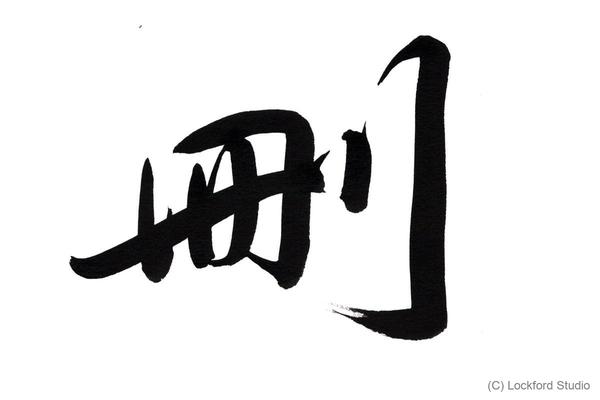 刪
(C) Lockford Studio